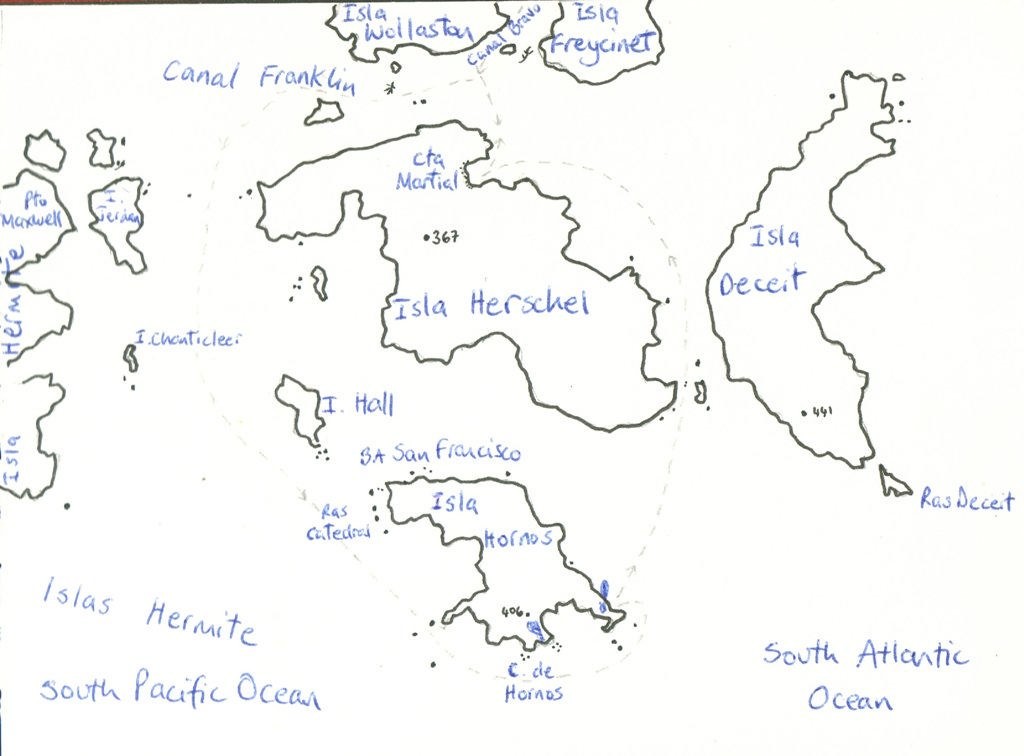 Isla
Wollaston
Canal Bravo
Isla
Freycinet
Canal Franklin
Cta
Martial
Pto
Maxwell
I.
Jerdan
•367
Isla
Deceit
Isla Herschel
Isla Hermite
I. Chanticleer
I. Hall
•441
BA San Francisco
Isla
Hornos
Ras
Catedral
Ras Deceit
406•
Islas Hermite
C. de
Hornos
South Pacific Ocean
South Atlantic
Ocean